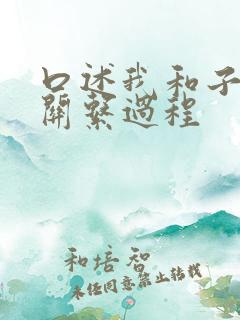 口述我和子
關繫過程
和培智
未经同意禁止转载